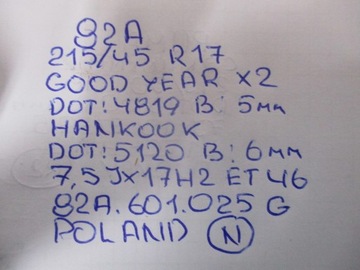 82A
215/45 R17
GOOD YEAR X2
DOT: 4819 B: 5mm
HANKOOK
DOT: 5120 B: 6mm
7,5JX17H2 ET 46
82A.601.025 G
POLAND N